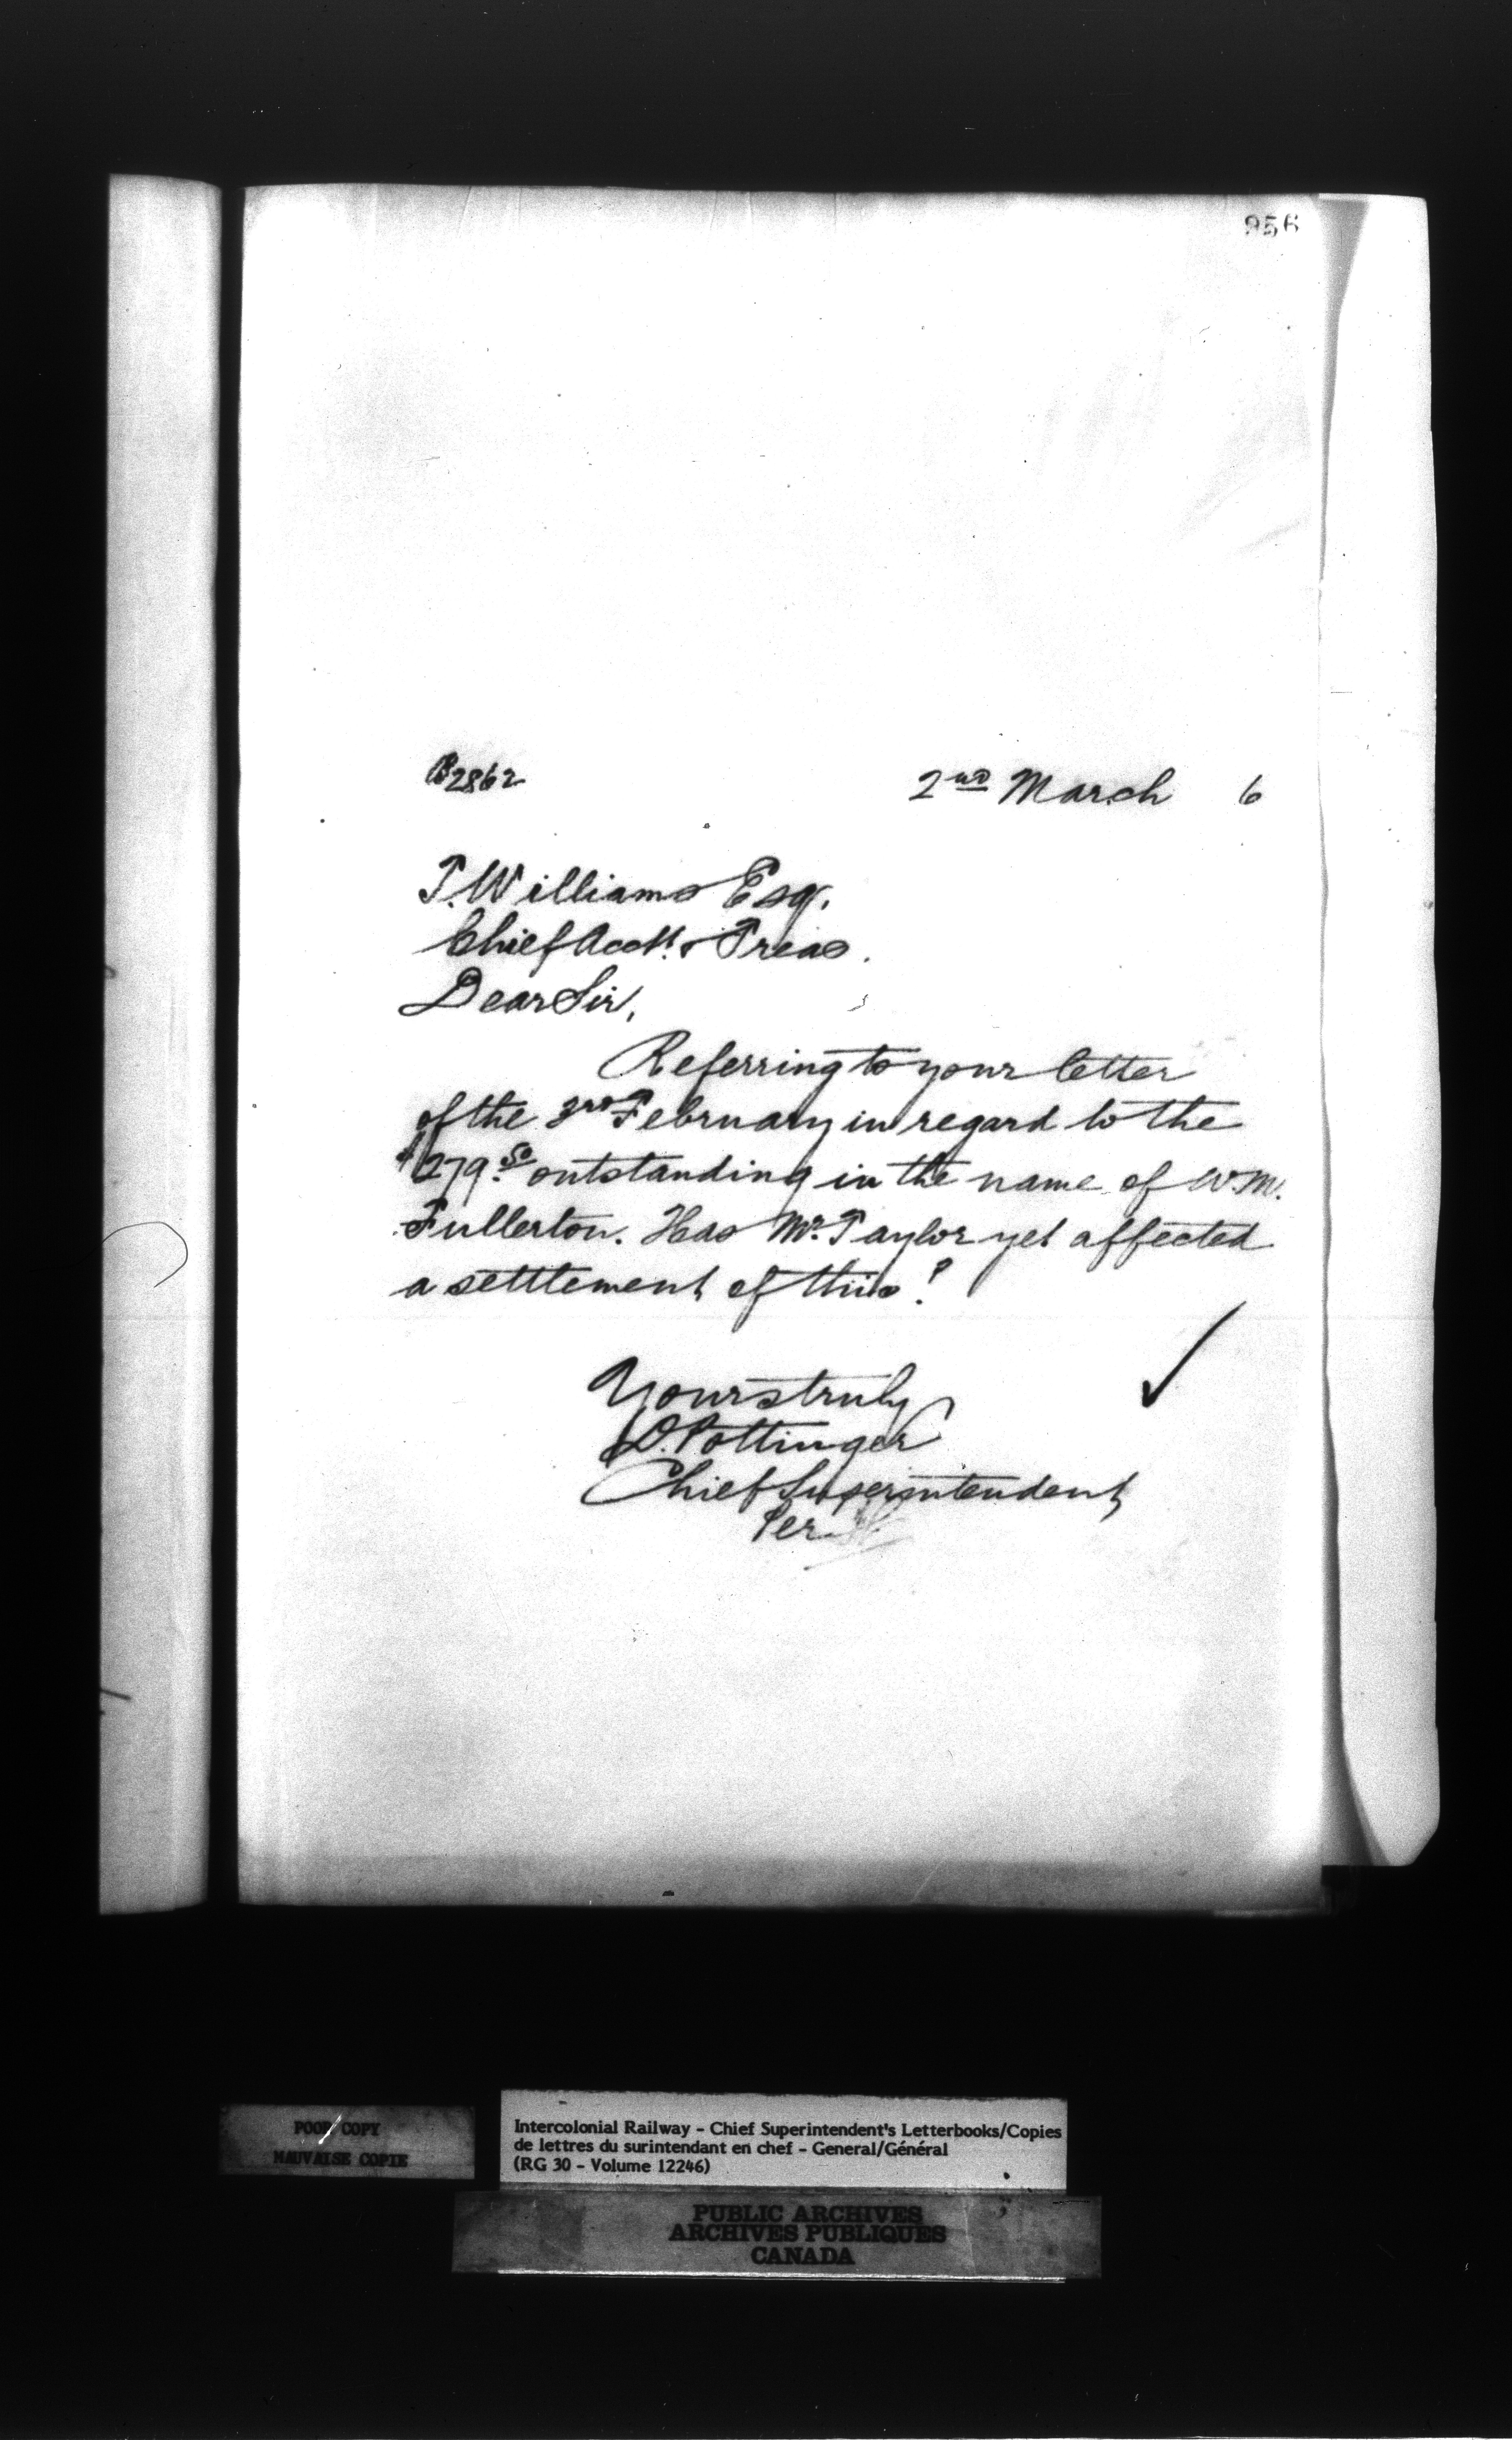 956
B2862
2nd March 6
T. Williams Esq.
Chief Acct. & Treas.
Dear Sir,
Referring to your letter
of the 3rd February in regard to the
$279.50 outstanding in the name of W.M.
Fullerton. Has Mr. Taylor yet affected
a settlement of this?
Yours truly
D. Pottinger
Chief Superintendent
Per
POOR COPY
MAUVAISE COPIE
Intercolonial Railway - Chief Superintendent's Letterbooks/Copies
de lettres du surintendant en chef - General/Général
(RG 30 - Volume 12246)
PUBLIC ARCHIVES
ARCHIVES PUBLIQUES
CANADA